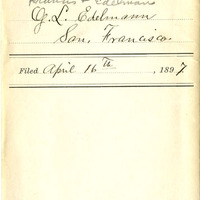 & Edelman
G. L. Edelmann
San Francisco.
Filed April 16th, 1897